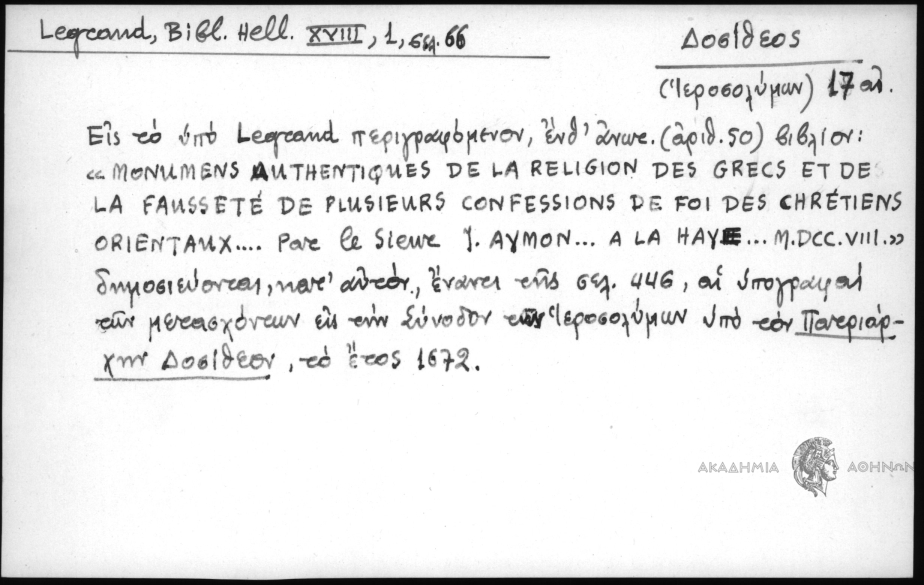 Legrand, Bibl. Hell. XVIII, 1, σελ. 66
Δοσίθεος
(Ἱεροσολύμων) 17 αἰ.
Εἰς τὸ ὑπὸ Legrand περιγραφόμενον, ἔνθ' ἄνωτ. (ἀριθ. 50) βιβλίον:
«MONUMENS AUTHENTIQUES DE LA RELIGION DES GRECS ET DE
LA FAUSSETÉ DE PLUSIEURS CONFESSIONS DE FOI DES CHRÉTIENS
ORIENTAUX.... Par le Sieur J. AYMON... A LA HAYE... M.DCC.VIII.»
δημοσιεύονται, κατ' αὐτόν, ἔναντι τῆς σελ. 446, αἱ ὑπογραφαὶ
τῶν μετασχόντων εἰς τὴν Σύνοδον τῶν Ἱεροσολύμων ὑπὸ τὸν Πατριάρ-
χην Δοσίθεον, τὸ ἔτος 1672.
ΑΚΑΔΗΜΙΑ ΑΘΗΝΩΝ